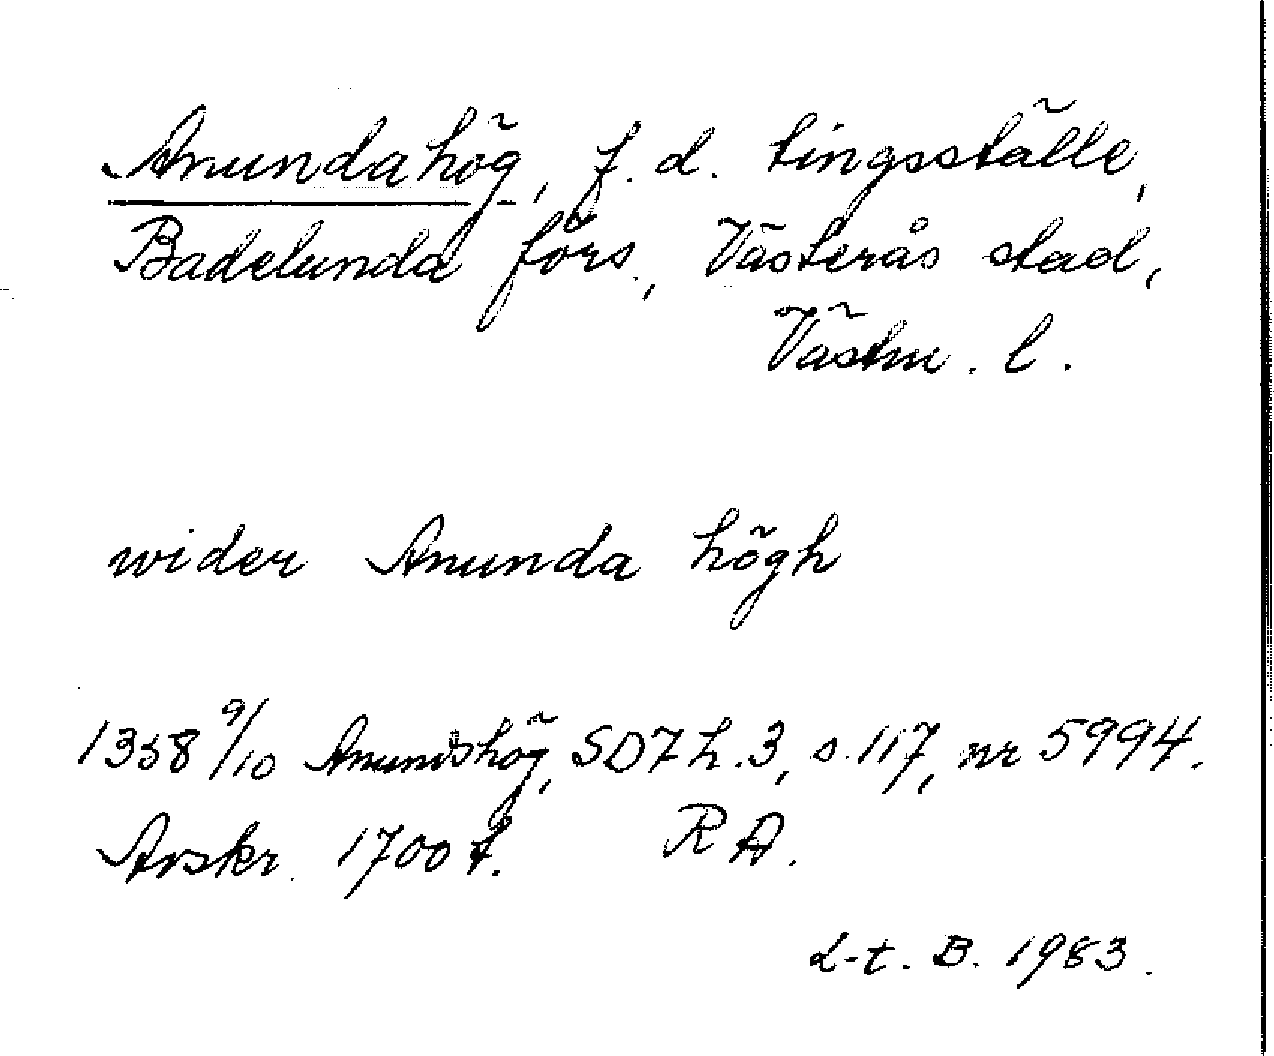 Anundahög, f. d. tingsställe,
Badelunda förs., Västerås stad,
Västm. l.
wider Anunda högh
1358 9/10 Anundshög, SD7 h.3, s.117, nr 5994.
Avskr. 1700t. RA.
L-t. B. 1983.